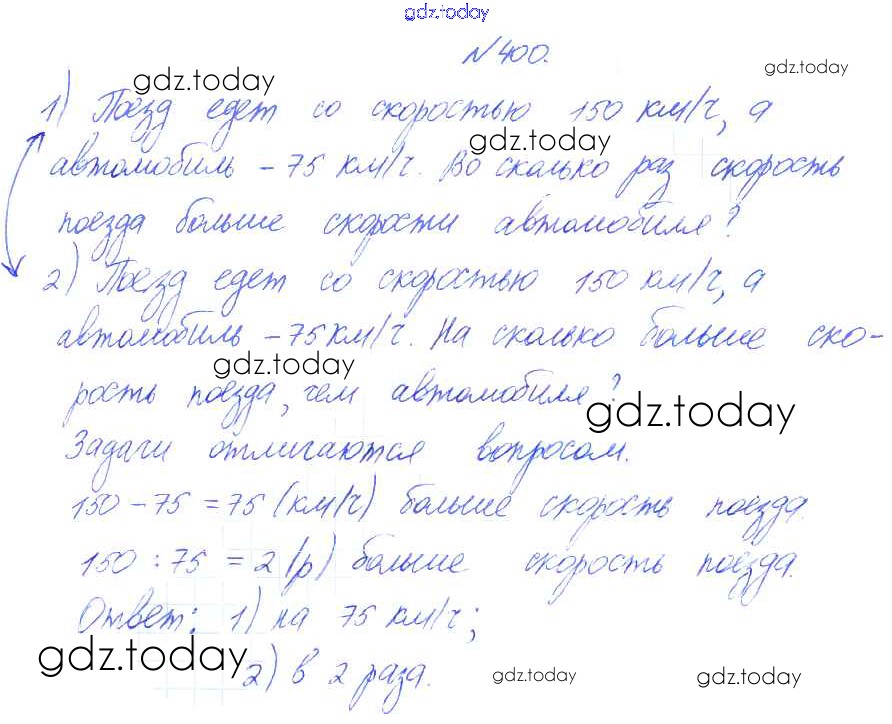 gdz.today
№400.
gdz.today
gdz.today
1) Поезд едет со скоростью 150 км/ч, а
gdz.today
автомобиль – 75 км/ч. Во сколько раз скорость
поезда больше скорости автомобиля?
2) Поезд едет со скоростью 150 км/ч, а
автомобиль – 75 км/ч. На сколько больше ско-
gdz.today
рость поезда, чем автомобиля?
gdz.today
Задачи отличаются вопросом.
150 – 75 = 75 (км/ч) больше скорость поезда.
150 : 75 = 2 (р) больше скорость поезда.
Ответ: 1) на 75 км/ч;
gdz.today
2) в 2 раза.
gdz.today
gdz.today